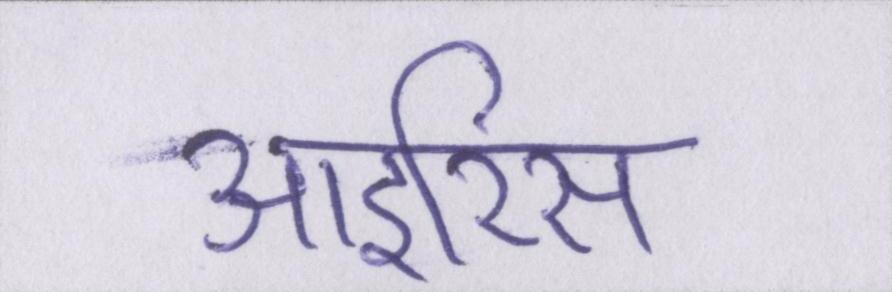 आइरिंस